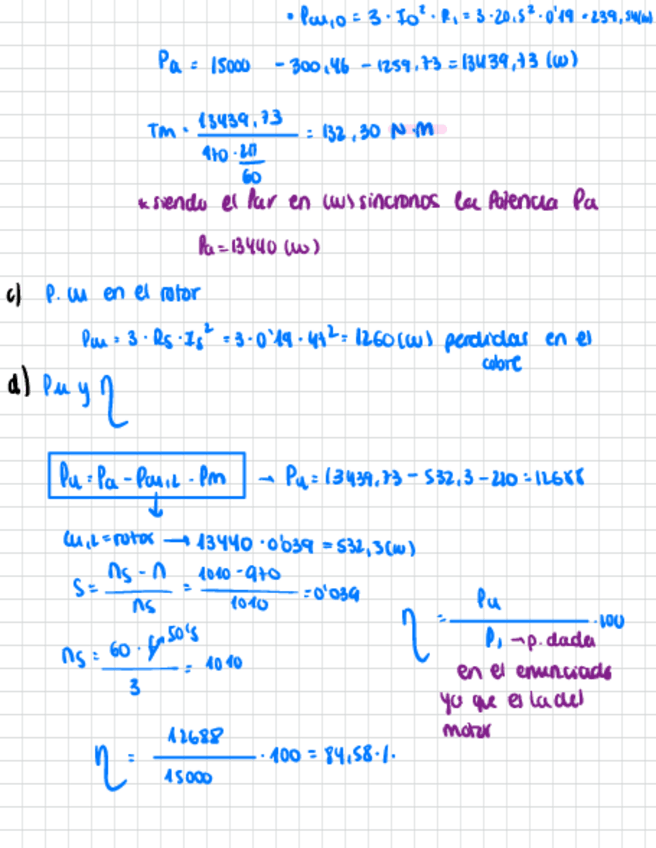 • Pcu,0 = 3 · I0² · R1 = 3 · 20,5² · 0'19 = 239,54(w)
Pa = 15000 - 300,46 - 1259,73 = 13439,73 (w)
Tm = 13439,73 / (970 · 2π/60) = 132,30 N·m
* siendo el Par en (w) síncronos la Potencia Pa
Pa = 13440 (w)
c) P. cu en el rotor
Pcu = 3 · Rs · Is² = 3 · 0'19 · 47² = 1260 (w) perdidas en el
cobre
d) Pu y η
Pu = Pa - Pcu,2 - Pm → Pu = 13439,73 - 532,3 - 220 = 12688
↓
cu,2 = rotor → 13440 · 0'039 = 532,3 (w)
S = (ns - n) / ns = (1010 - 970) / 1010 = 0'039
ns = (60 · f) / 3 = 1010
50'5
η = Pu / P1 · 100
→ p. dada
en el enunciado
ya que es la del
motor
η = 12688 / 15000 · 100 = 84,58 ·/.